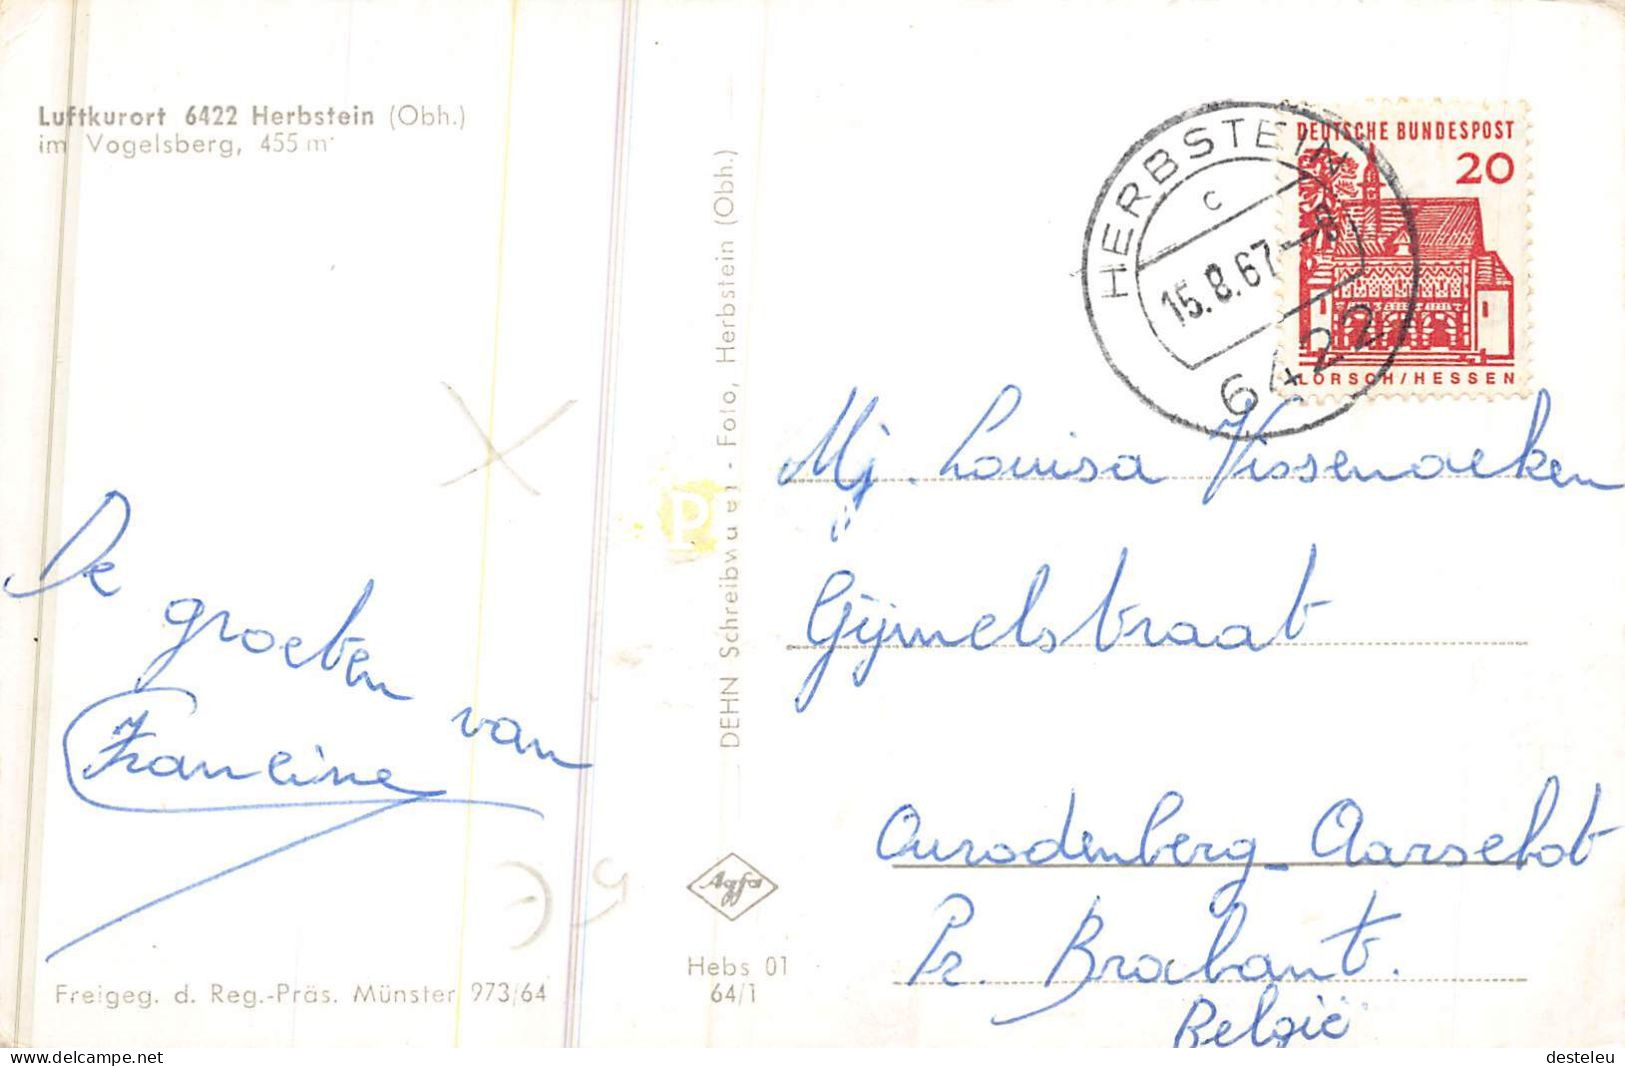 Luftkurort 6422 Herbstein (Obh.)
im Vogelsberg, 455 m
De
groeten
van
Francine
Freigeg. d. Reg.-Präs. Münster 973/64
DEHN Schreibwaren - Foto, Herbstein (Obh.)
Agfa
Hebs 01
64/1
HERBSTEIN
c
15.8.67-8
6422
DEUTSCHE BUNDESPOST
20
LORSCH/HESSEN
Mj. Louisa Vissenaeken
Gijmelstraat
Ourodenberg - Aarschot
Pr. Brabant.
België
desteleu
www.delcampe.net